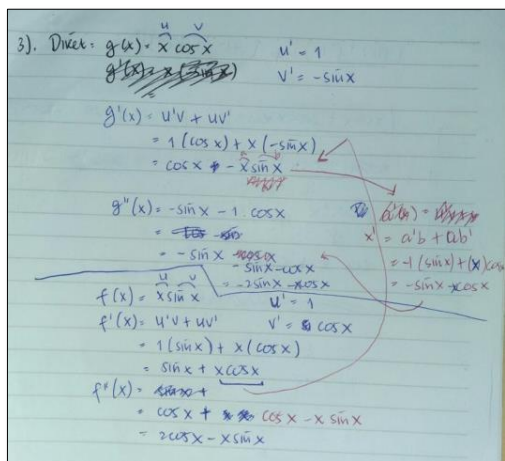 u v
3). Diket = g(x) = x cos x u' = 1
v' = -sin x
g'(x) = u'v + uv'
= 1 (cos x) + x (-sin x)
= cos x - x sin x
g''(x) = -sin x - 1 . cos x
= -sin x
-sin x - cos x
= -2sin x - x cos x
x' = a'b + ab'
= -1 (sin x) + (x) cos
= -sin x - x cos x
u v
f(x) = x sin x u' = 1
f'(x) = u'v + uv' v' = cos x
= 1 (sin x) + x (cos x)
= sin x + x cos x
f''(x) =
= cos x + cos x - x sin x
= 2cos x - x sin x